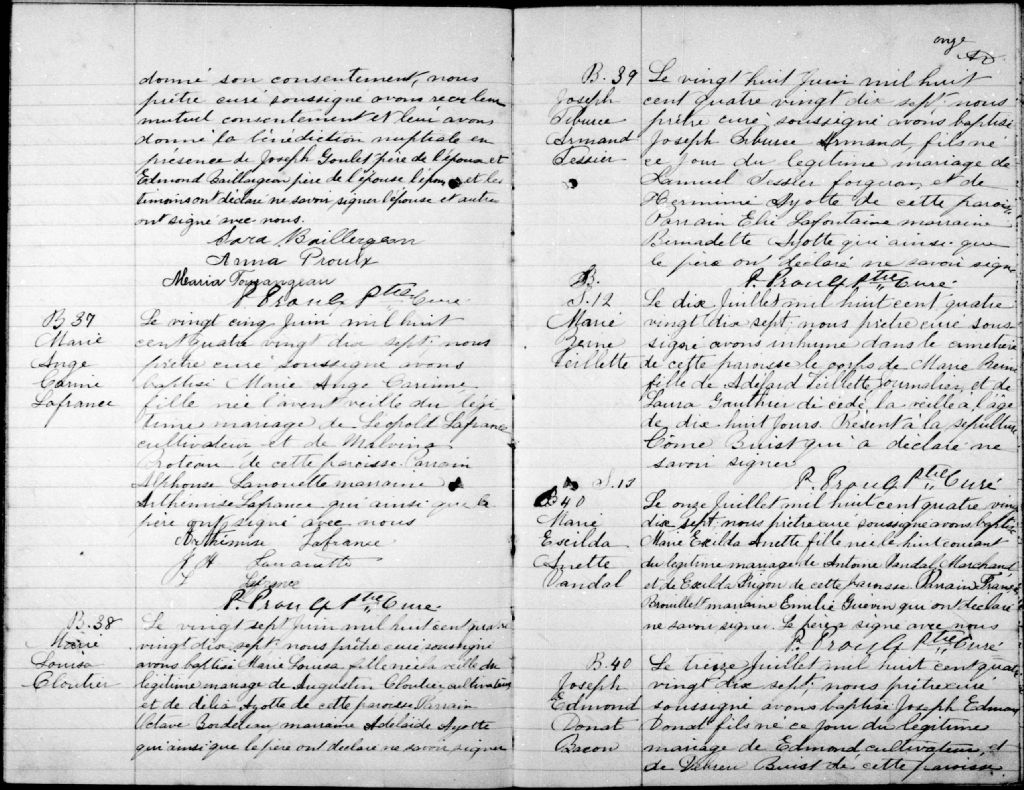 donné son consentement, nous
prêtre curé soussigné avons recu leur
mutuel consentement et leur avons
donné la bénédiction nuptiale en
présence de Joseph Goulet père de l'époux et
Edmond Baillargeon père de l'épouse l'époux et les
témoins ont déclaré ne savoir signer l'épouse et autres
ont signé avec nous.
Sara Baillergeon
Anna Proulx
Maria Tourangeau
P. Proulx Ptre Curé
B 37
Marie
Ange
Carine
Lafrance
Le vingt cinq Juin mil huit
cent quatre vingt dix sept, nous
prêtre curé soussigné avons
baptisé Marie Ange Carinne
fille née l'avant veille du légi
time mariage de Léopold Lafrance
cultivateur et de Malvina
Proteau de cette paroisse. Parrain
Alphonse Lanouette marraine
Arthémise Lafrance qui ainsi que le
père ont signé avec nous
Arthémise Lafrance
Lanouette
P. Proulx Ptre Curé
B. 38
Marie
Louisa
Cloutier
Le vingt sept juin mil huit cent quatre
vingt dix sept, nous prêtre curé soussigné
avons baptisé Marie Louisa fille née la veille du
légitime mariage de Augustin Cloutier, cultivateur
et de délia Ayotte de cette paroisse. Parrain
Octave Bordeleau marraine Adélaide Ayotte
qui ainsi que le père ont déclaré ne savoir signer
onze
B. 39
Joseph
Tiburce
Armand
Tessier
Le vingt huit Juin mil huit
cent quatre vingt dix sept nous
prêtre curé soussigné avons baptisé
Joseph Tiburce Armand, fils né
ce jour du légitime mariage de
Samuel Tessier forgeron, et de
Hermine Ayotte de cette parois
Parrain Elie Lafontaine marraine
Bernadette Ayotte qui ainsi que
le père ont déclaré ne savoir signe
P. Proulx Ptre Curé
B.
S. 12
Marie
Berne
Veillette
Le dix Juillet mil huit cent quatre
vingt dix sept, nous prêtre curé sous-
signé avons inhumé dans le cimetière
de cette paroisse le corps de Marie Berne
fille de Adélard Veillette, Journalier, et de
Laura Gauthier dicédé la veille à l'âge
de dix huit Jours. Présent à la sépulture
Côme Buist qui a déclaré ne
savoir signer
P. Proulx Ptre Curé
S. 13
B 40
Marie
Exilda
Anette
Vandal
Le onze Juillet mil huit cent quatre vin
dix sept, nous prêtre curé soussigné avons baptisé
Marie Exilda Anette fille née le huit courant
du légitime mariage de Antoine Vandal, Marchand
et de Exilda Frigon de cette paroisse Parrain Franç
Brouillet marraine Emilie Guérin qui ont déclaré
ne savoir signer. Le père a signé avec nous
P. Proulx Ptre Curé
B. 40
Joseph
Edmond
Donat
Bacon
Le treize Juillet mil huit cent quatre
vingt dix sept, nous prêtre curé
soussigné avons baptisé Joseph Edmond
Donat fils né ce jour du légitime
mariage de Edmond, cultivateur, et
de Buist de cette paroisse